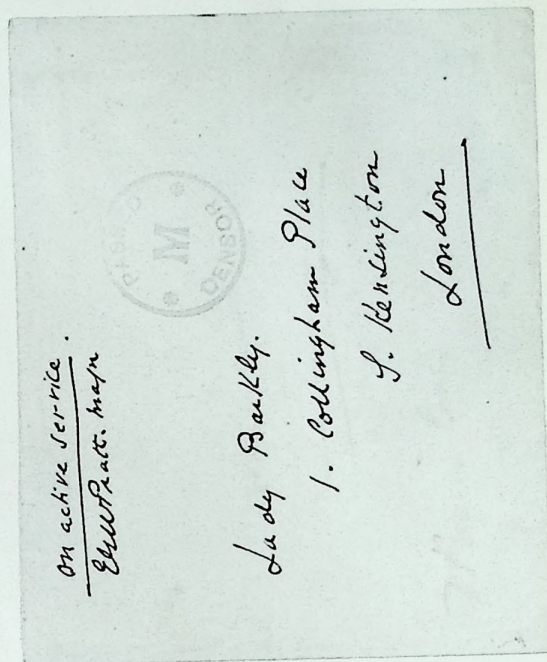 on active service.
Pratt. Majr
PASSED
M
CENSOR
Lady Barkly.
1. Collingham Place
S. Kensington
London